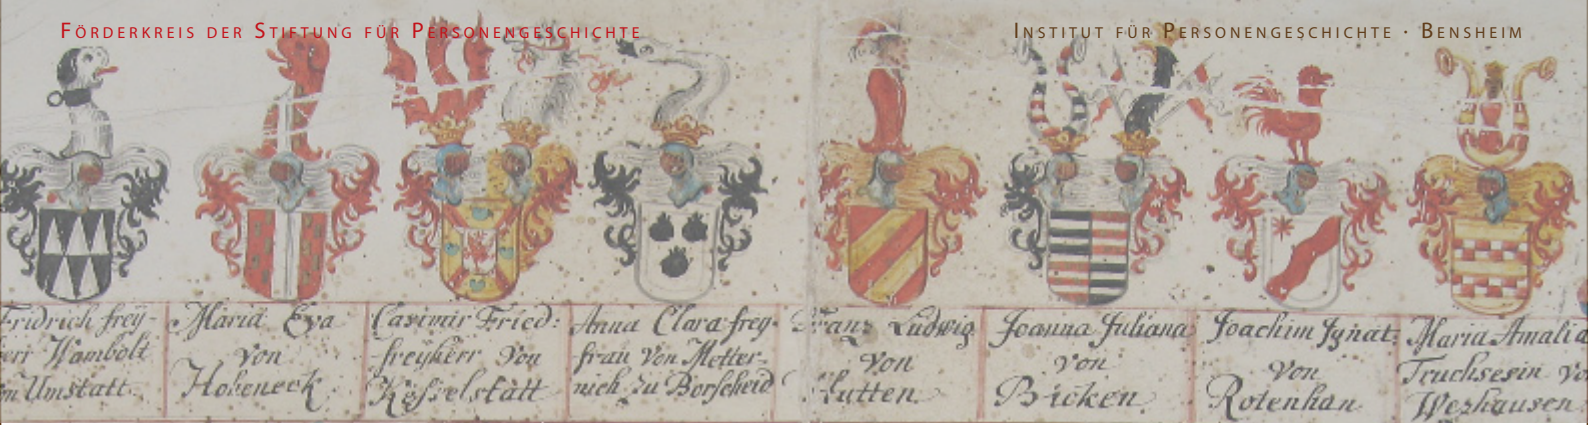 Förderkreis der Stiftung für Personengeschichte
Institut für Personengeschichte · Bensheim
Fridrich frey-
Wambolt
Umstatt.
Maria Eva
von
Hoheneck
Casimir Fried:
freyherr von
Kesselstatt
Anna Clara frey-
frau von Metter-
nich zu Borscheid
Franz Ludwig
von
Hutten
Joanna Juliana
von
Bicken.
Joachim Jgnat:
von
Rotenhan
Maria Amalia
Truchsesin vo
Wezhausen